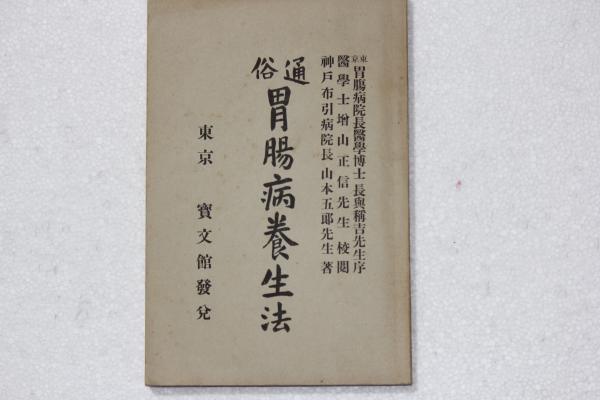 東京胃腸病院長醫學博士長與稱吉先生序
醫學士增山正信先生校閱
神戶布引病院長山本五郎先生著
通俗胃腸病養生法
東京 寶文館發兌